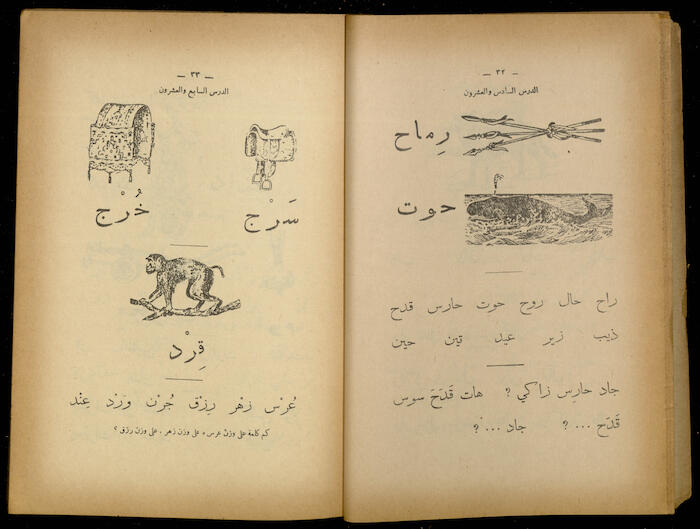 — ٣٢ —
الدرس السادس والعشرون
رِماح
حوت
راح حال روح حوت حارس قدح
ذيب زير عيد تين حين
جاد حارِس زاكي ? هات قَدَحَ سوس
قَدَح ... ? جاد ... ?
— ٣٣ —
الدرس السابع والعشرون
سَرْج
خُرْج
قِرْد
عُرْس زَهْر رِزْق جُرْن وَرْد عِنْد
كم كلمة على وزن عرس ، على وزن زهر ، على وزن رزق ؟